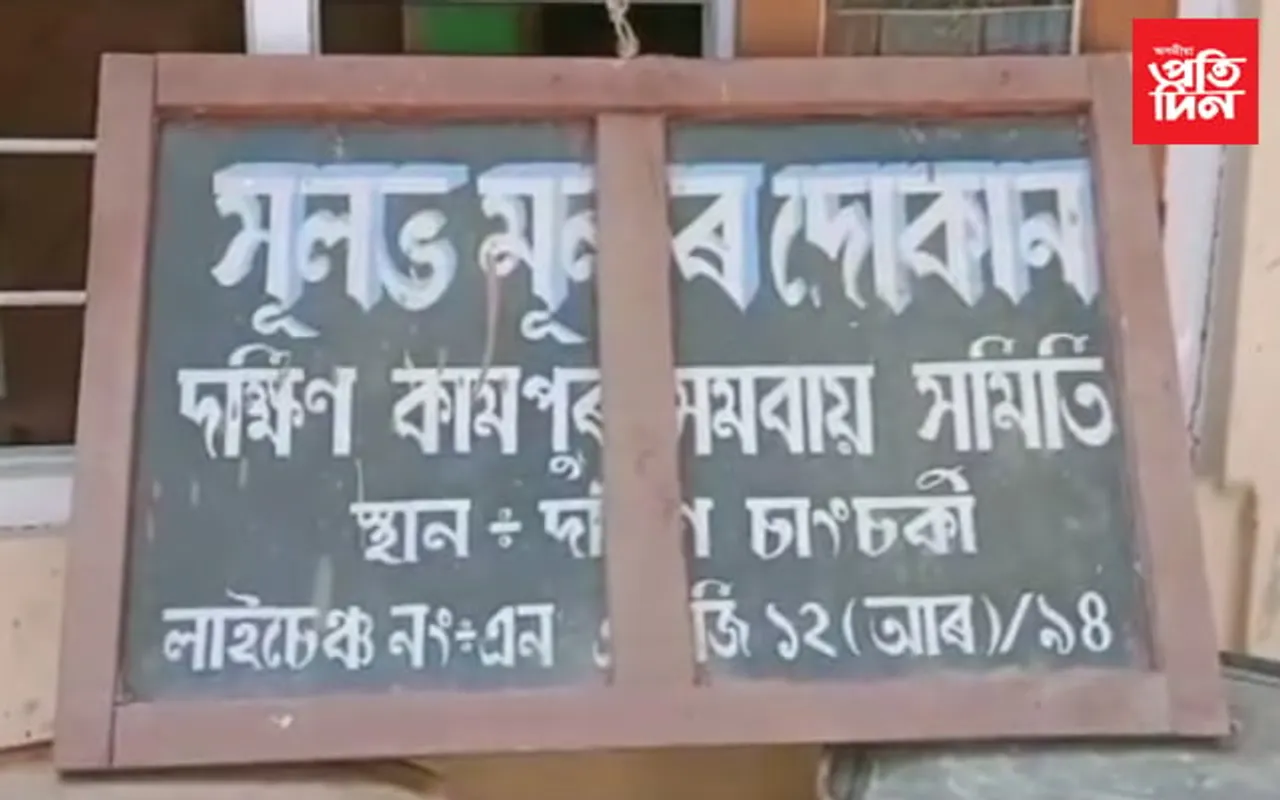 অসমীয়া
প্ৰতি
দিন
সূলভ মূ ৰ দোকান
দক্ষিণ কামপুৰ সমবায় সমিতি
স্থান ÷ চাংচকী
লাইচেঞ্চ নং÷এন জি ১২(আৰ)/৯৪